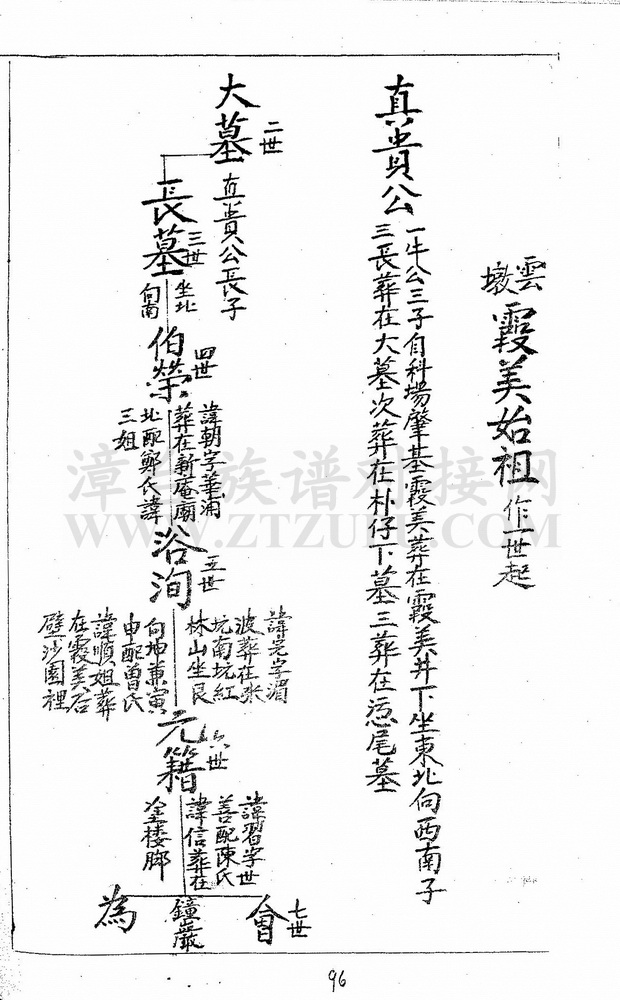 雲墩 霞美始祖 作一世起
真貴公
一牛公三子自科場肇基霞美葬在霞美井下坐東北向西南子
三長葬在大墓次葬在朴仔下墓三葬在 尾墓
大墓 二世
真貴公長子
長墓 三世
坐北
向南
伯榮 四世
諱朝字華浦
葬在新庵廟
北配鄭氏諱
三姐
浴洵 五世
諱完字渭
波葬在水
坑南坑紅
林山坐艮
向坤兼寅
申配曾氏
諱順姐葬
在霞美石
壁沙園裡
元籍 六世
諱習字世
善配陳氏
諱信葬在
金楼脚
會 七世
鐘巖
為
漳州族谱对接网
WWW.ZTZUPU.COM
96